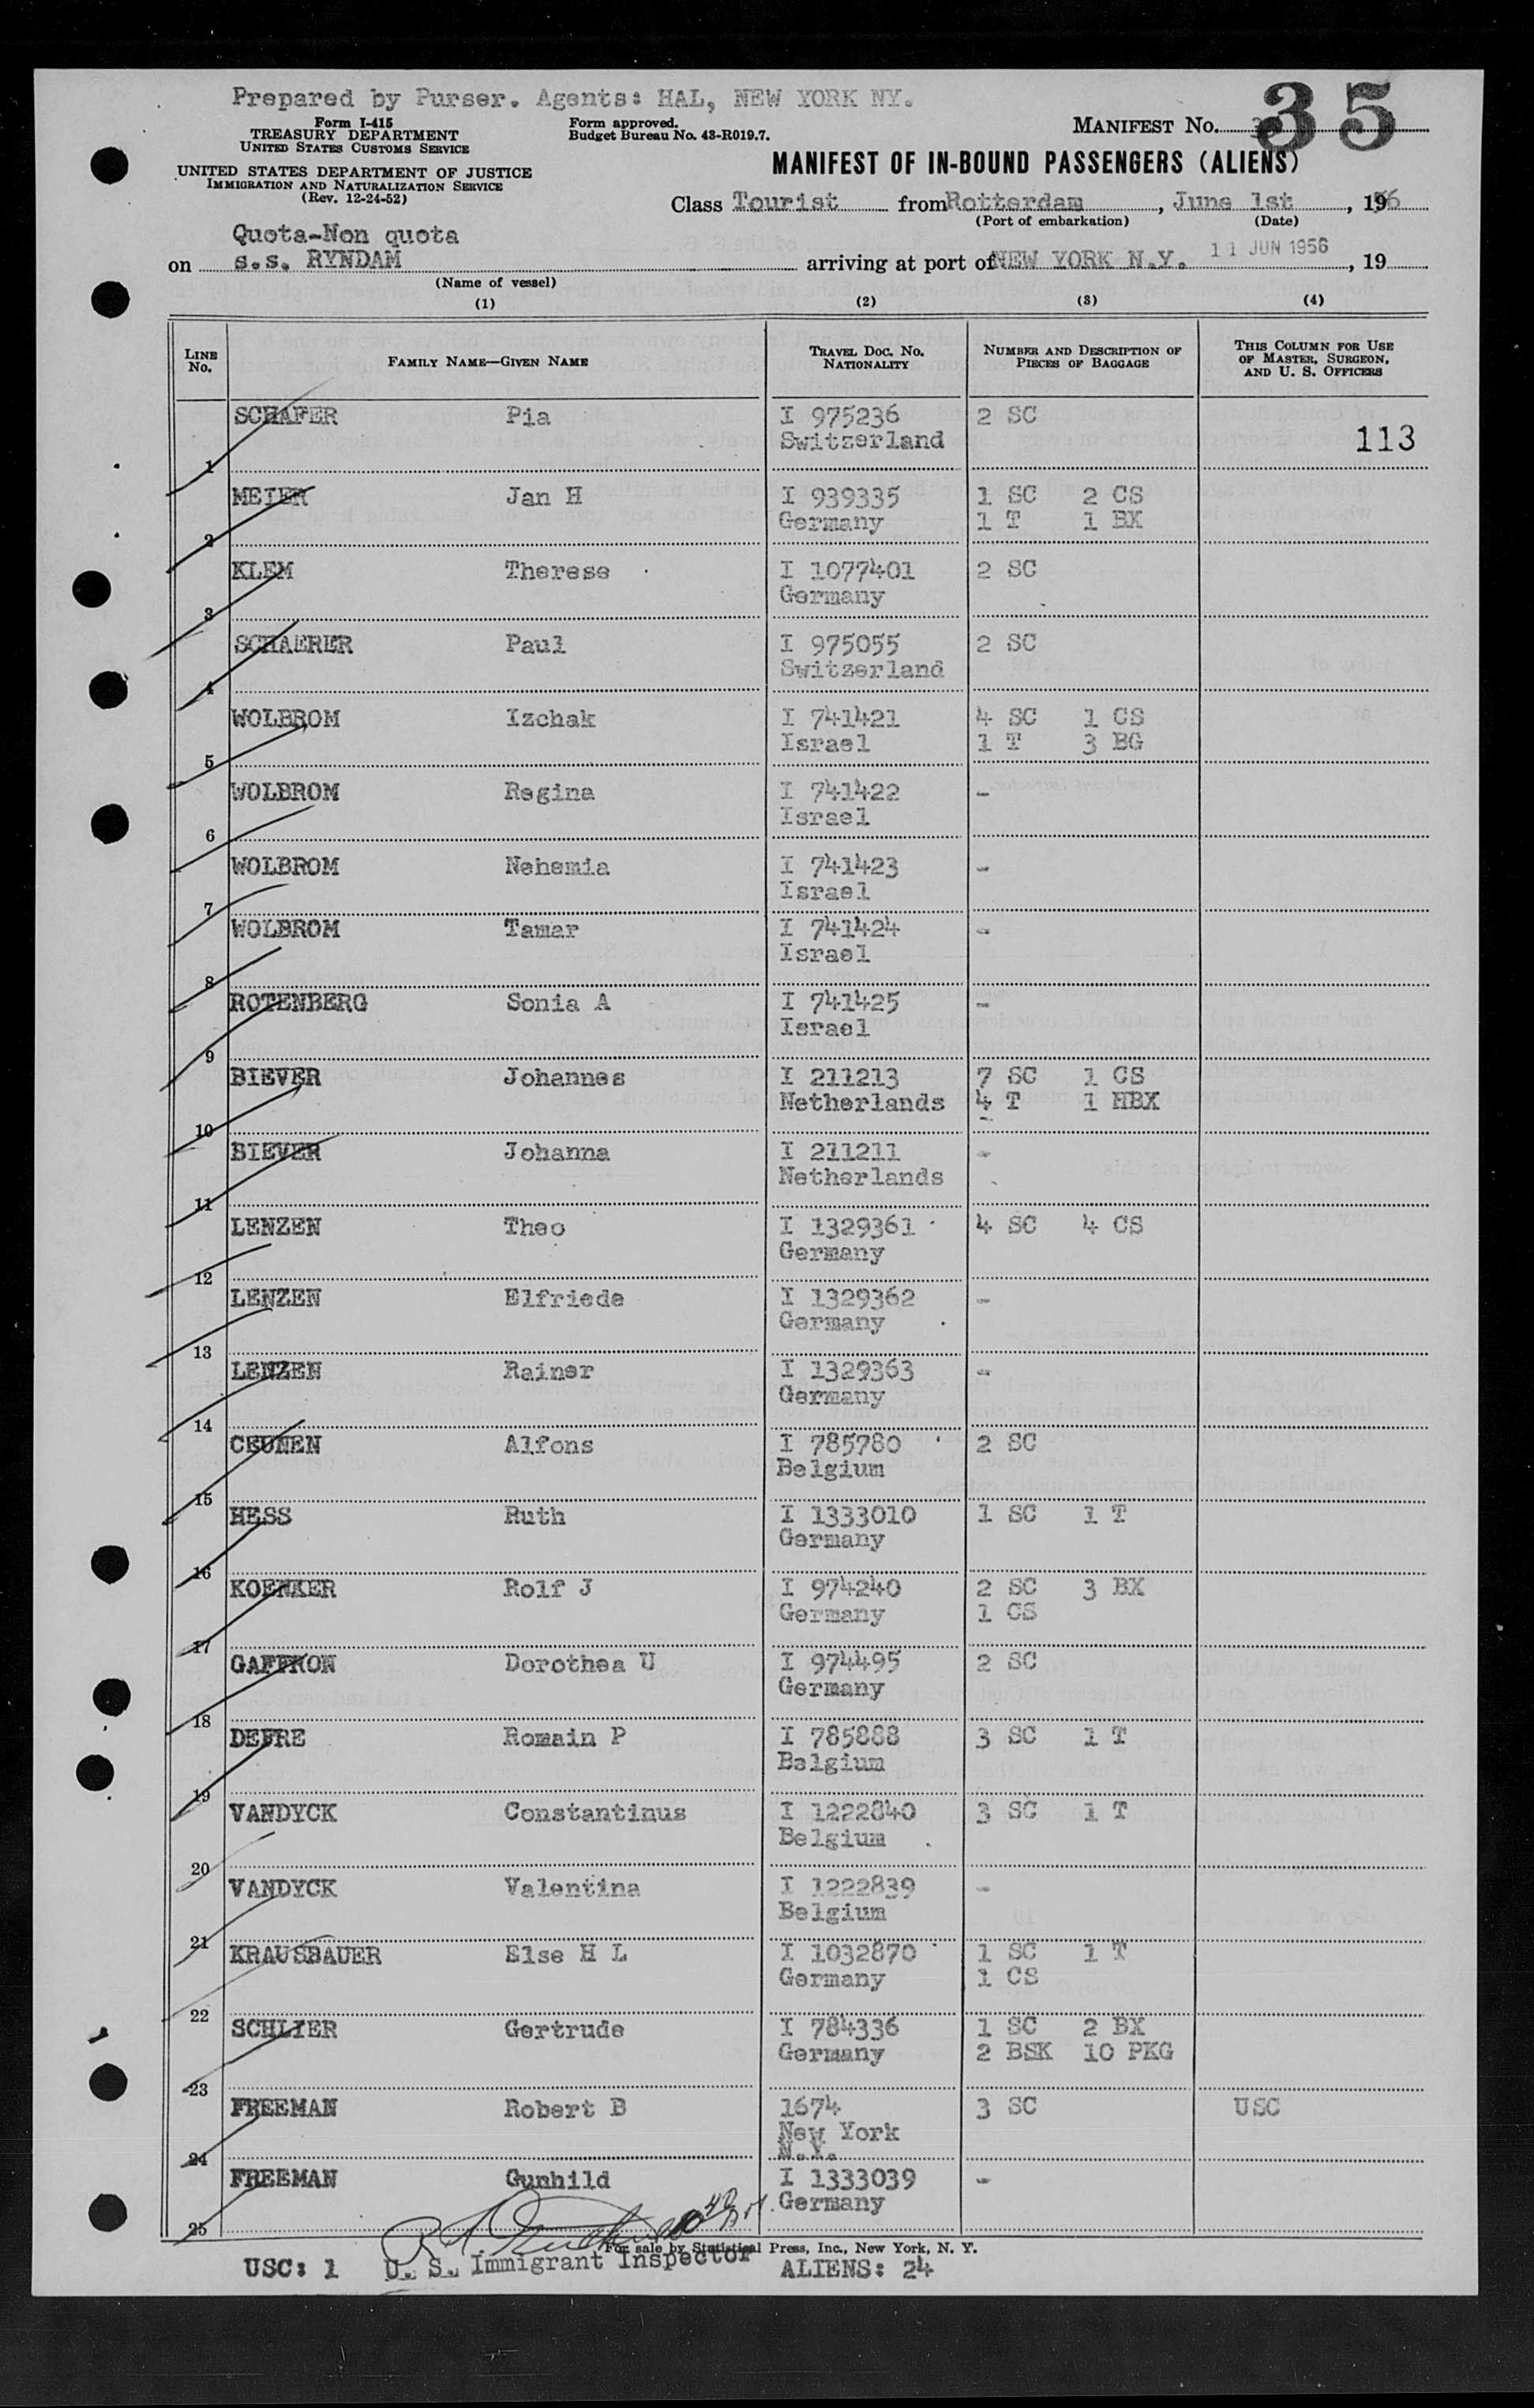 Prepared by Purser. Agents: HAL, NEW YORK NY.
Form I-415
TREASURY DEPARTMENT
UNITED STATES CUSTOMS SERVICE
Form approved.
Budget Bureau No. 43-R019.7.
MANIFEST NO. 35
UNITED STATES DEPARTMENT OF JUSTICE
IMMIGRATION AND NATURALIZATION SERVICE
(Rev. 12-24-52)
MANIFEST OF IN-BOUND PASSENGERS (ALIENS)
Class Tourist from Rotterdam, June 1st, 1956
(Port of embarkation) (Date)
Quota-Non quota
on s.s. RYNDAM arriving at port of NEW YORK N.Y. 11 JUN 1956, 19
(Name of vessel)
(1) (2) (3) (4)
LINE NO. FAMILY NAME—GIVEN NAME TRAVEL DOC. NO. NATIONALITY NUMBER AND DESCRIPTION OF PIECES OF BAGGAGE THIS COLUMN FOR USE OF MASTER, SURGEON, AND U. S. OFFICERS
SCHAFER Pia I 975236 2 SC
1 Switzerland 113
MEIER Jan H I 939335 1 SC 2 CS
2 Germany 1 T 1 BX
KLEM Therese I 1077401 2 SC
3 Germany
SCHAERER Paul I 975055 2 SC
4 Switzerland
WOLBROM Izchak I 741421 4 SC 1 CS
5 Israel 1 T 3 BG
WOLBROM Regina I 741422 -
6 Israel
WOLBROM Nehemia I 741423 -
7 Israel
WOLBROM Tamar I 741424 -
8 Israel
ROTENBERG Sonia A I 741425 -
9 Israel
BIEVER Johannes I 211213 7 SC 1 CS
10 Netherlands 4 T 1 HBX
BIEVER Johanna I 211211 -
11 Netherlands
LENZEN Theo I 1329361 4 SC 4 CS
12 Germany
LENZEN Elfriede I 1329362 -
13 Germany
LENZEN Rainer I 1329363 -
14 Germany
CEUNEN Alfons I 785780 2 SC
15 Belgium
HESS Ruth I 1333010 1 SC 1 T
16 Germany
KOENKER Rolf J I 974240 2 SC 3 BX
17 Germany 1 CS
GAFFRON Dorothea U I 974495 2 SC
18 Germany
DEFRE Romain P I 785888 3 SC 1 T
19 Belgium
VANDYCK Constantinus I 1222840 3 SC 1 T
20 Belgium
VANDYCK Valentina I 1222839 -
21 Belgium
KRAUSBAUER Else H L I 1032870 1 SC 1 T
22 Germany 1 CS
SCHLIER Gertrude I 784336 1 SC 2 BX
23 Germany 2 BSK 10 PKG
FREEMAN Robert B 1674 3 SC USC
New York
24 N.Y.
FREEMAN Gunhild I 1333039 -
25 Germany
For sale by Statistical Press, Inc., New York, N. Y.
USC: 1 U. S. Immigrant Inspector ALIENS: 24